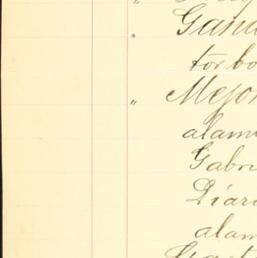 "
" Gana
tor bo
" Mejor
alam
Gabri
Diari
alam